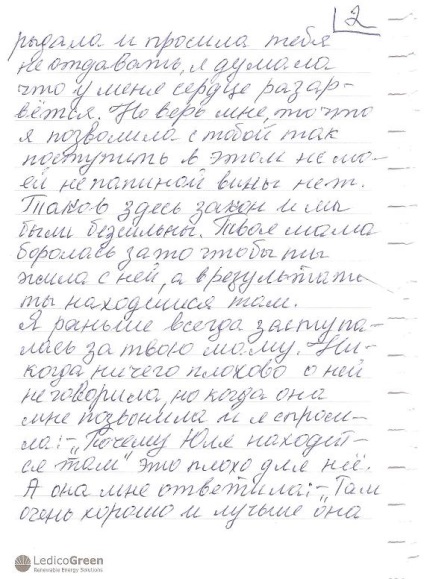 2
рыдала и просила тебя
не отдавать, я думала
что у меня сердце разор-
вётся. Но верь мне, то что
я позволила с тобой так
поступить в этом не мо-
ей не папиной вины нет.
Таков здесь закон и мы
были безсильны. Твоя мама
боролась за то чтобы ты
жила с ней, а в результате
ты находишся там.
Я раньше всегда заступа-
лась за твою маму. Ни-
когда, ничего плохово о ней
не говорила, но когда она
мне позвонила и я спроси-
ла: – „Почему Юля находит-
ся там" это плохо для неё.
А она мне ответила: – „Там
очень хорошо и лучше она
LedicoGreen
Renewable Energy Solutions